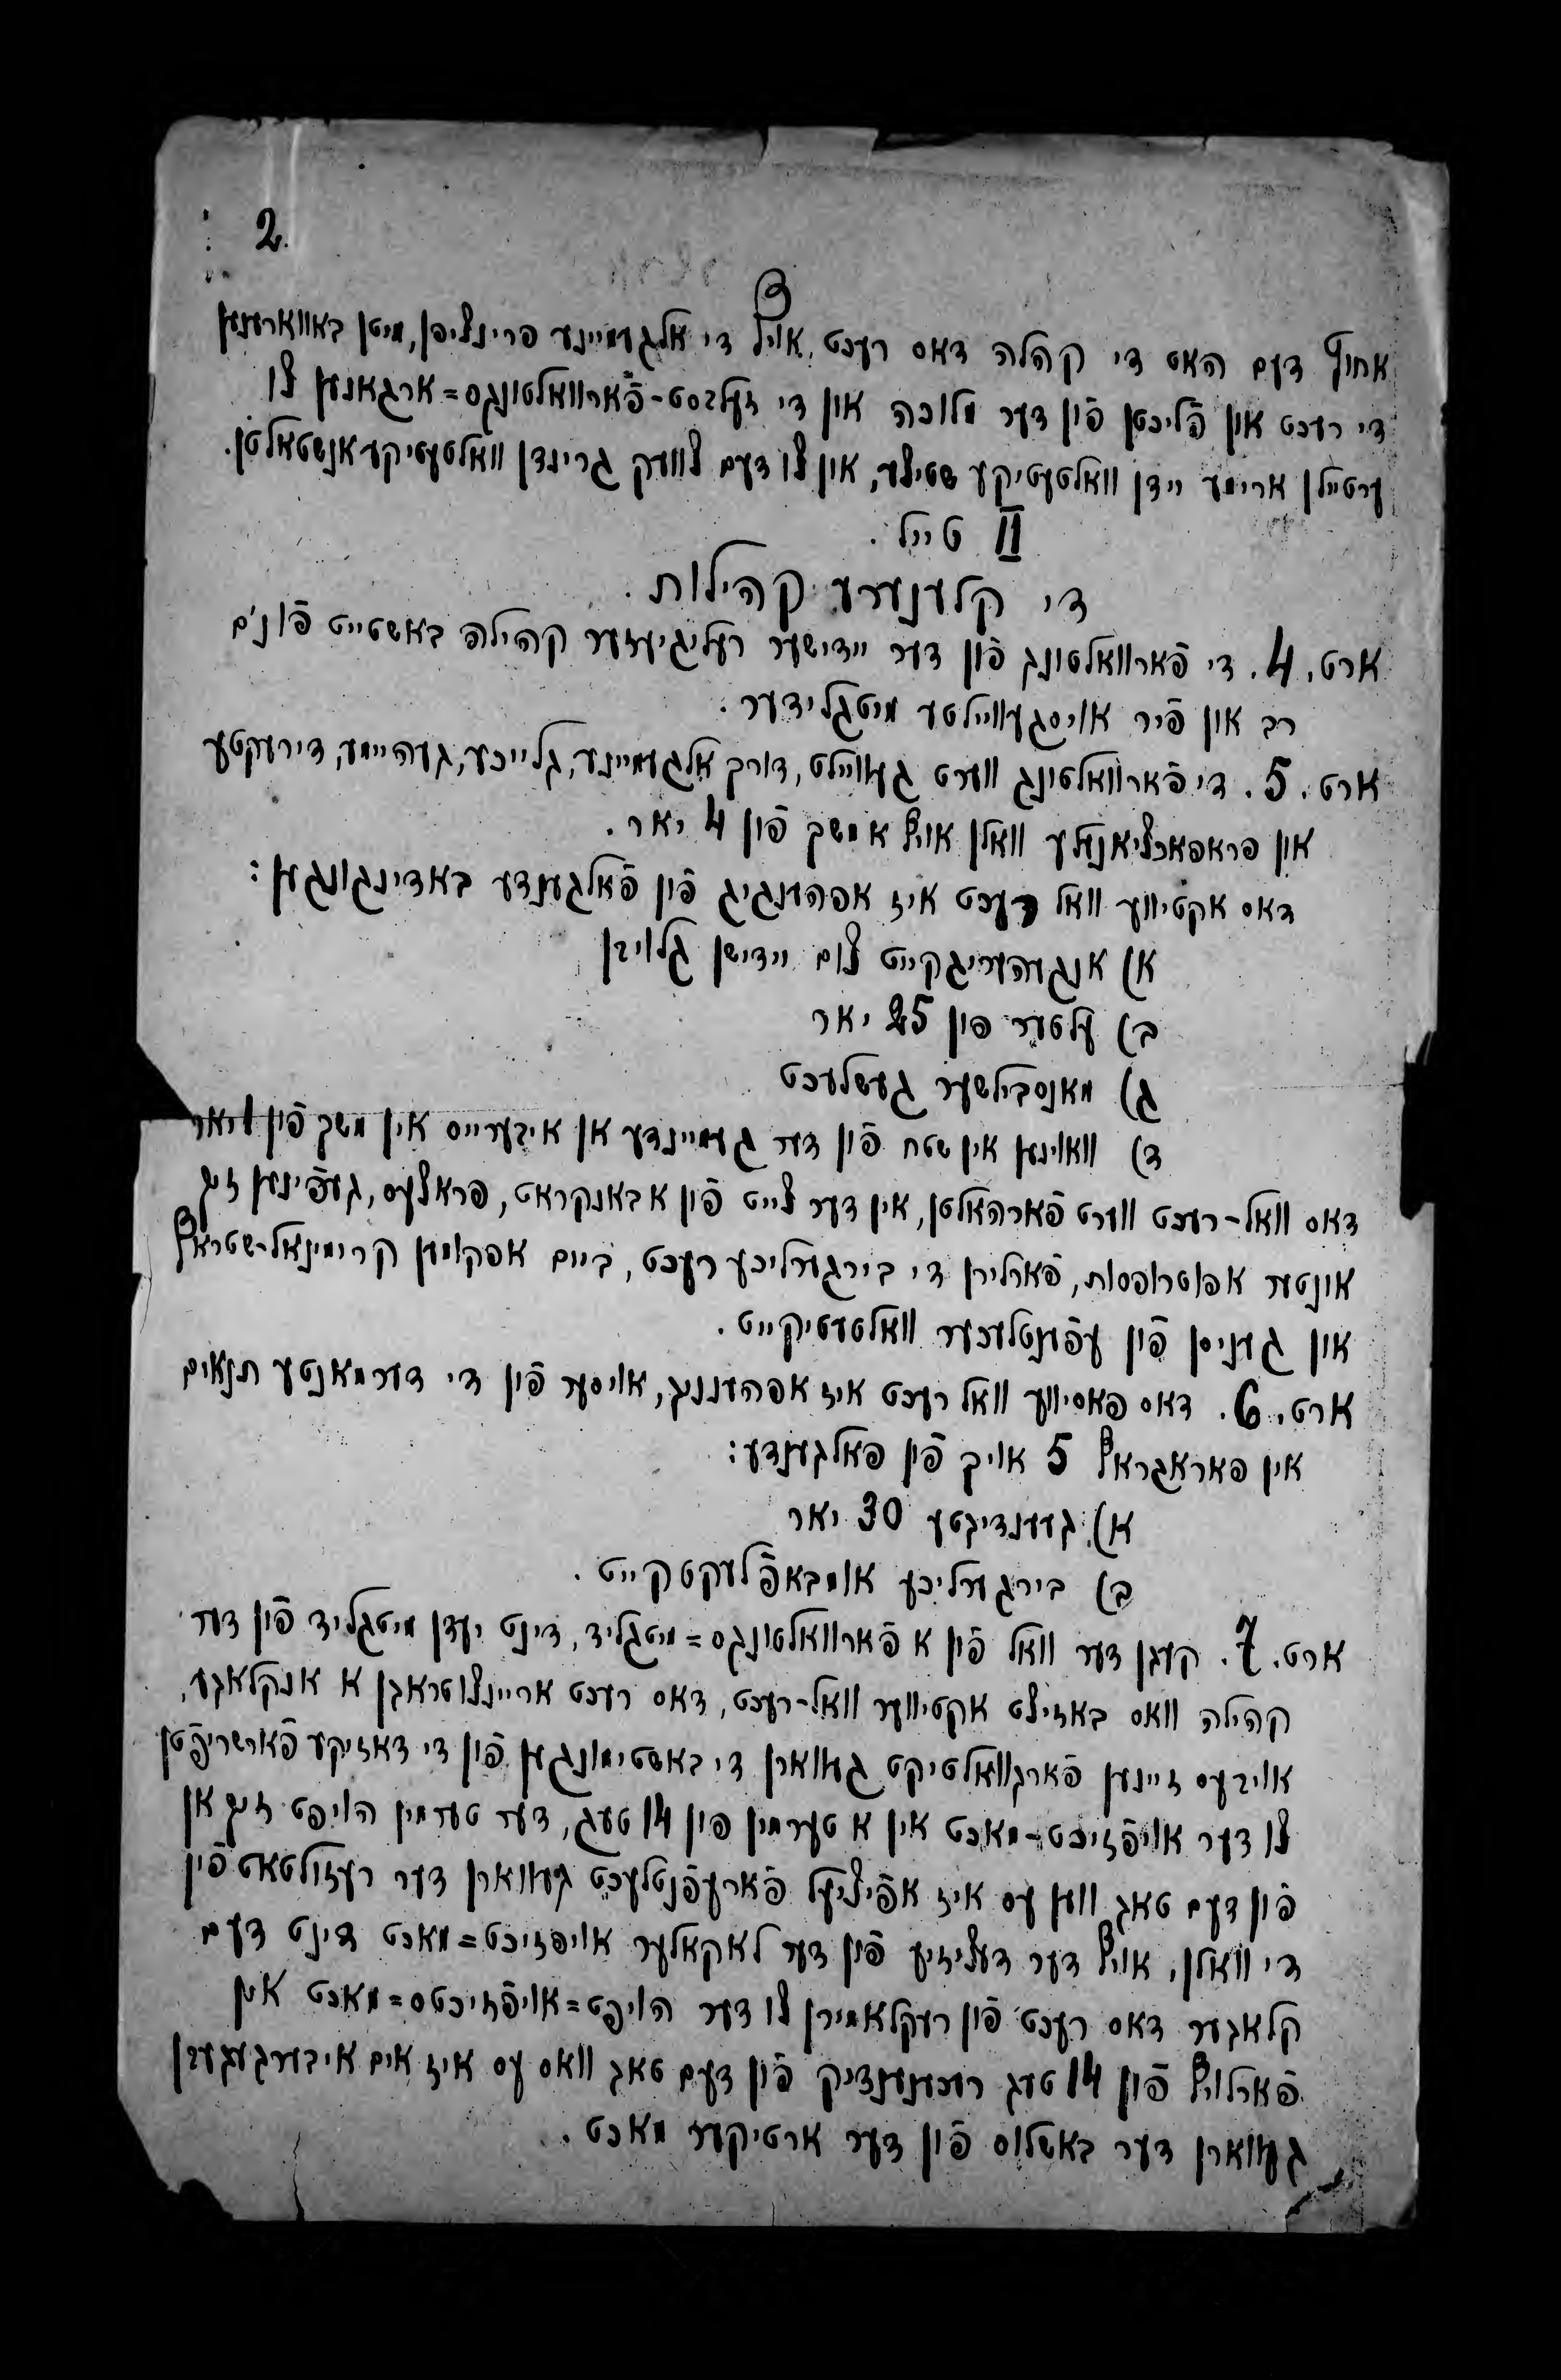 2.
אחוץ דעם האט די קהלה דאס רעכט, אויף די אלגעמיינע פרינציפן, מיטן באווארענען
די רעכט און פֿליכטן פֿון דער מלוכה און די זעלבסט-פֿארוואלטונגס=ארגאנען צו
ערטיילן ארימע יידן וואלטעטיקע שטיצע, און צו דעם צוועק גרינדן וואלטעטיקע אנשטאלטן.
II טייל.
די קלענערע קהילות.
ארט. 4. די פֿארוואלטונג פֿון דער יידישער רעליגיעזער קהילה באשטייט פֿונ'ם
רב און פֿיר אויסגעוויילטע מיטגלידער.
ארט. 5. די פֿארוואלטונג ווערט געוויילט, דורך אלגעמיינע, גלייכע, געהיימע, דירעקטע
און פראפארציאנעלע וואלן אויף א משך פֿון 4 יאר.
דאס אקטיווע וואל רעכט איז אפהענגיג פֿון פֿאלגענדע באדינגונגען:
א) אנגעהעריגקייט צום יידישן גלויבן
ב) עלטער פון 25 יאר
ג) מאנסבילשער געשלעכט
ד) וואוינען אין שטח פֿון דער געמיינדע אן איבערייס אין משך פֿון 1 יאר
דאס וואל-רעכט ווערט פֿארהאלטן, אין דער צייט פֿון א באנקראט, פראצעס, געפֿינען זיך
אונטער אפוטרופסות, פֿארלירן די בירגערליכע רעכט, ביים אפקומען קרימינאל-שטראף
און געניסן פֿון עפֿענטלעכער וואלטעטיקייט.
ארט. 6. דאס פאסיווע וואל רעכט איז אפהענגיג, אויסער פֿון די דערמאנטע תנאים
אין פאראגראף 5 אויך פֿון פאלגענדע:
א) געענדיגטע 30 יאר
ב) בירגערליכע אומבאפֿלעקטקייט.
ארט. 7. קעגן דער וואל פֿון א פֿארוואלטונגס=מיטגליד, דינט יעדן מיטגליד פֿון דער
קהילה וואס באזיצט אקטיווער וואל-רעכט, דאס רעכט אריינצוטראגן א אנקלאגע,
אויב עס זיינען פֿארגוואלטיקט געווארן די באשטימונגען פֿון די דאזיקע פֿארשריפֿטן
צו דער אויפֿזיכט-מאכט אין א טערמין פון 14 טעג, דער טערמין הויפט זיך אן
פֿון דעם טאג ווען עס איז אפֿיציעל פֿארעפֿנטלעכט געווארן דער רעזולטאט פֿון
די וואלן, אויף דער דעציזיע פֿון דער לאקאלער אויפזיכט=מאכט דינט דעם
קלאגער דאס רעכט פֿון רעקלאמירן צו דער הויפט=אויפֿזיכטס=מאכט אין
פֿארלויף פֿון 14 טעג רעכענענדיק פֿון דעם טאג וואס עס איז אים איבערגעגעבן
געווארן דער באשלוס פֿון דער ארטיקער מאכט.